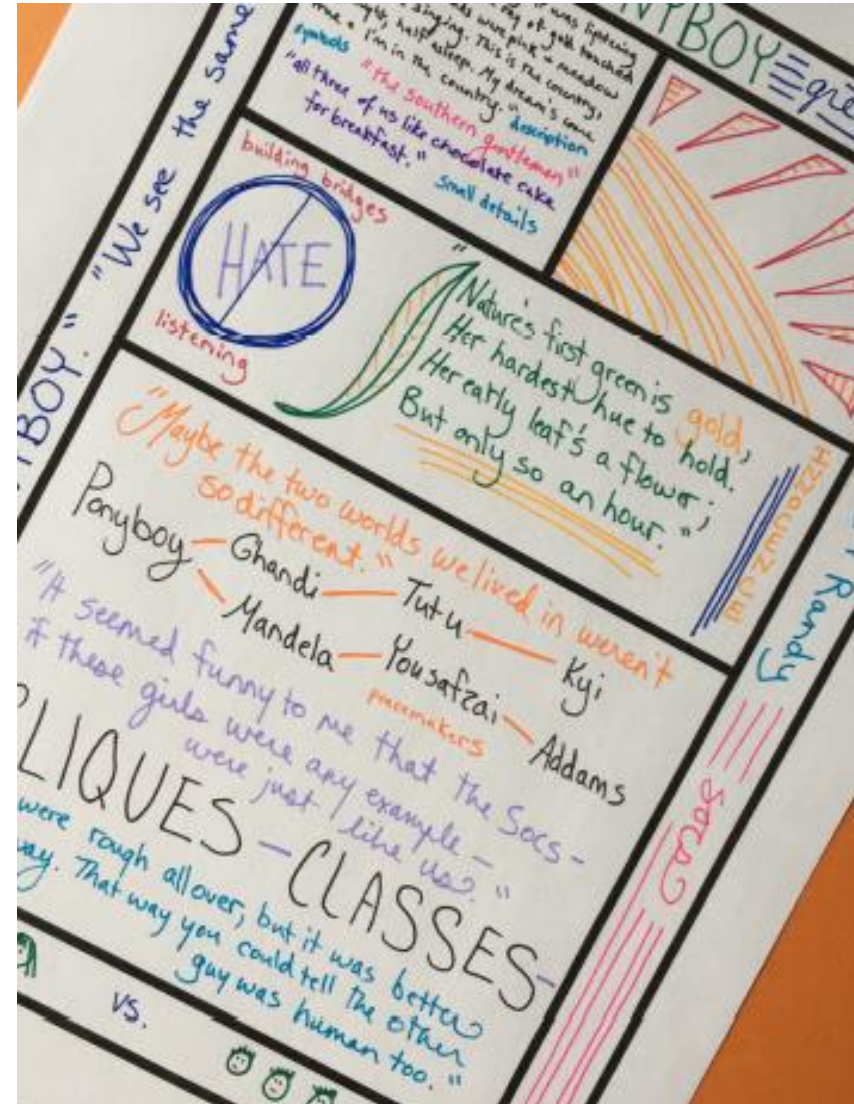 NYBOY
gre
was listening
of gold touched
were pink - meadow
singing. This is the country,
half asleep. My dream's come
I'm in the country."
symbols
description
"the southern gentlemen"
"all three of us like chocolate cake
for breakfast."
small details
building bridges
HATE
listening
"Nature's first green is gold,
Her hardest hue to hold.
Her early leaf's a flower;
But only so an hour."
INNOCENCE
"Maybe the two worlds we lived in weren't
so different."
Ponyboy - Ghandi - Tutu - Kyi
Mandela - Yousafzai - Addams
peacemakers
"It seemed funny to me that the Socs -
if these girls were any example -
were just like us."
LIQUES - CLASSES -
were rough all over, but it was better
way. That way you could tell the other
guy was human too."
vs.
BOY." "We see the same
Randy
socs